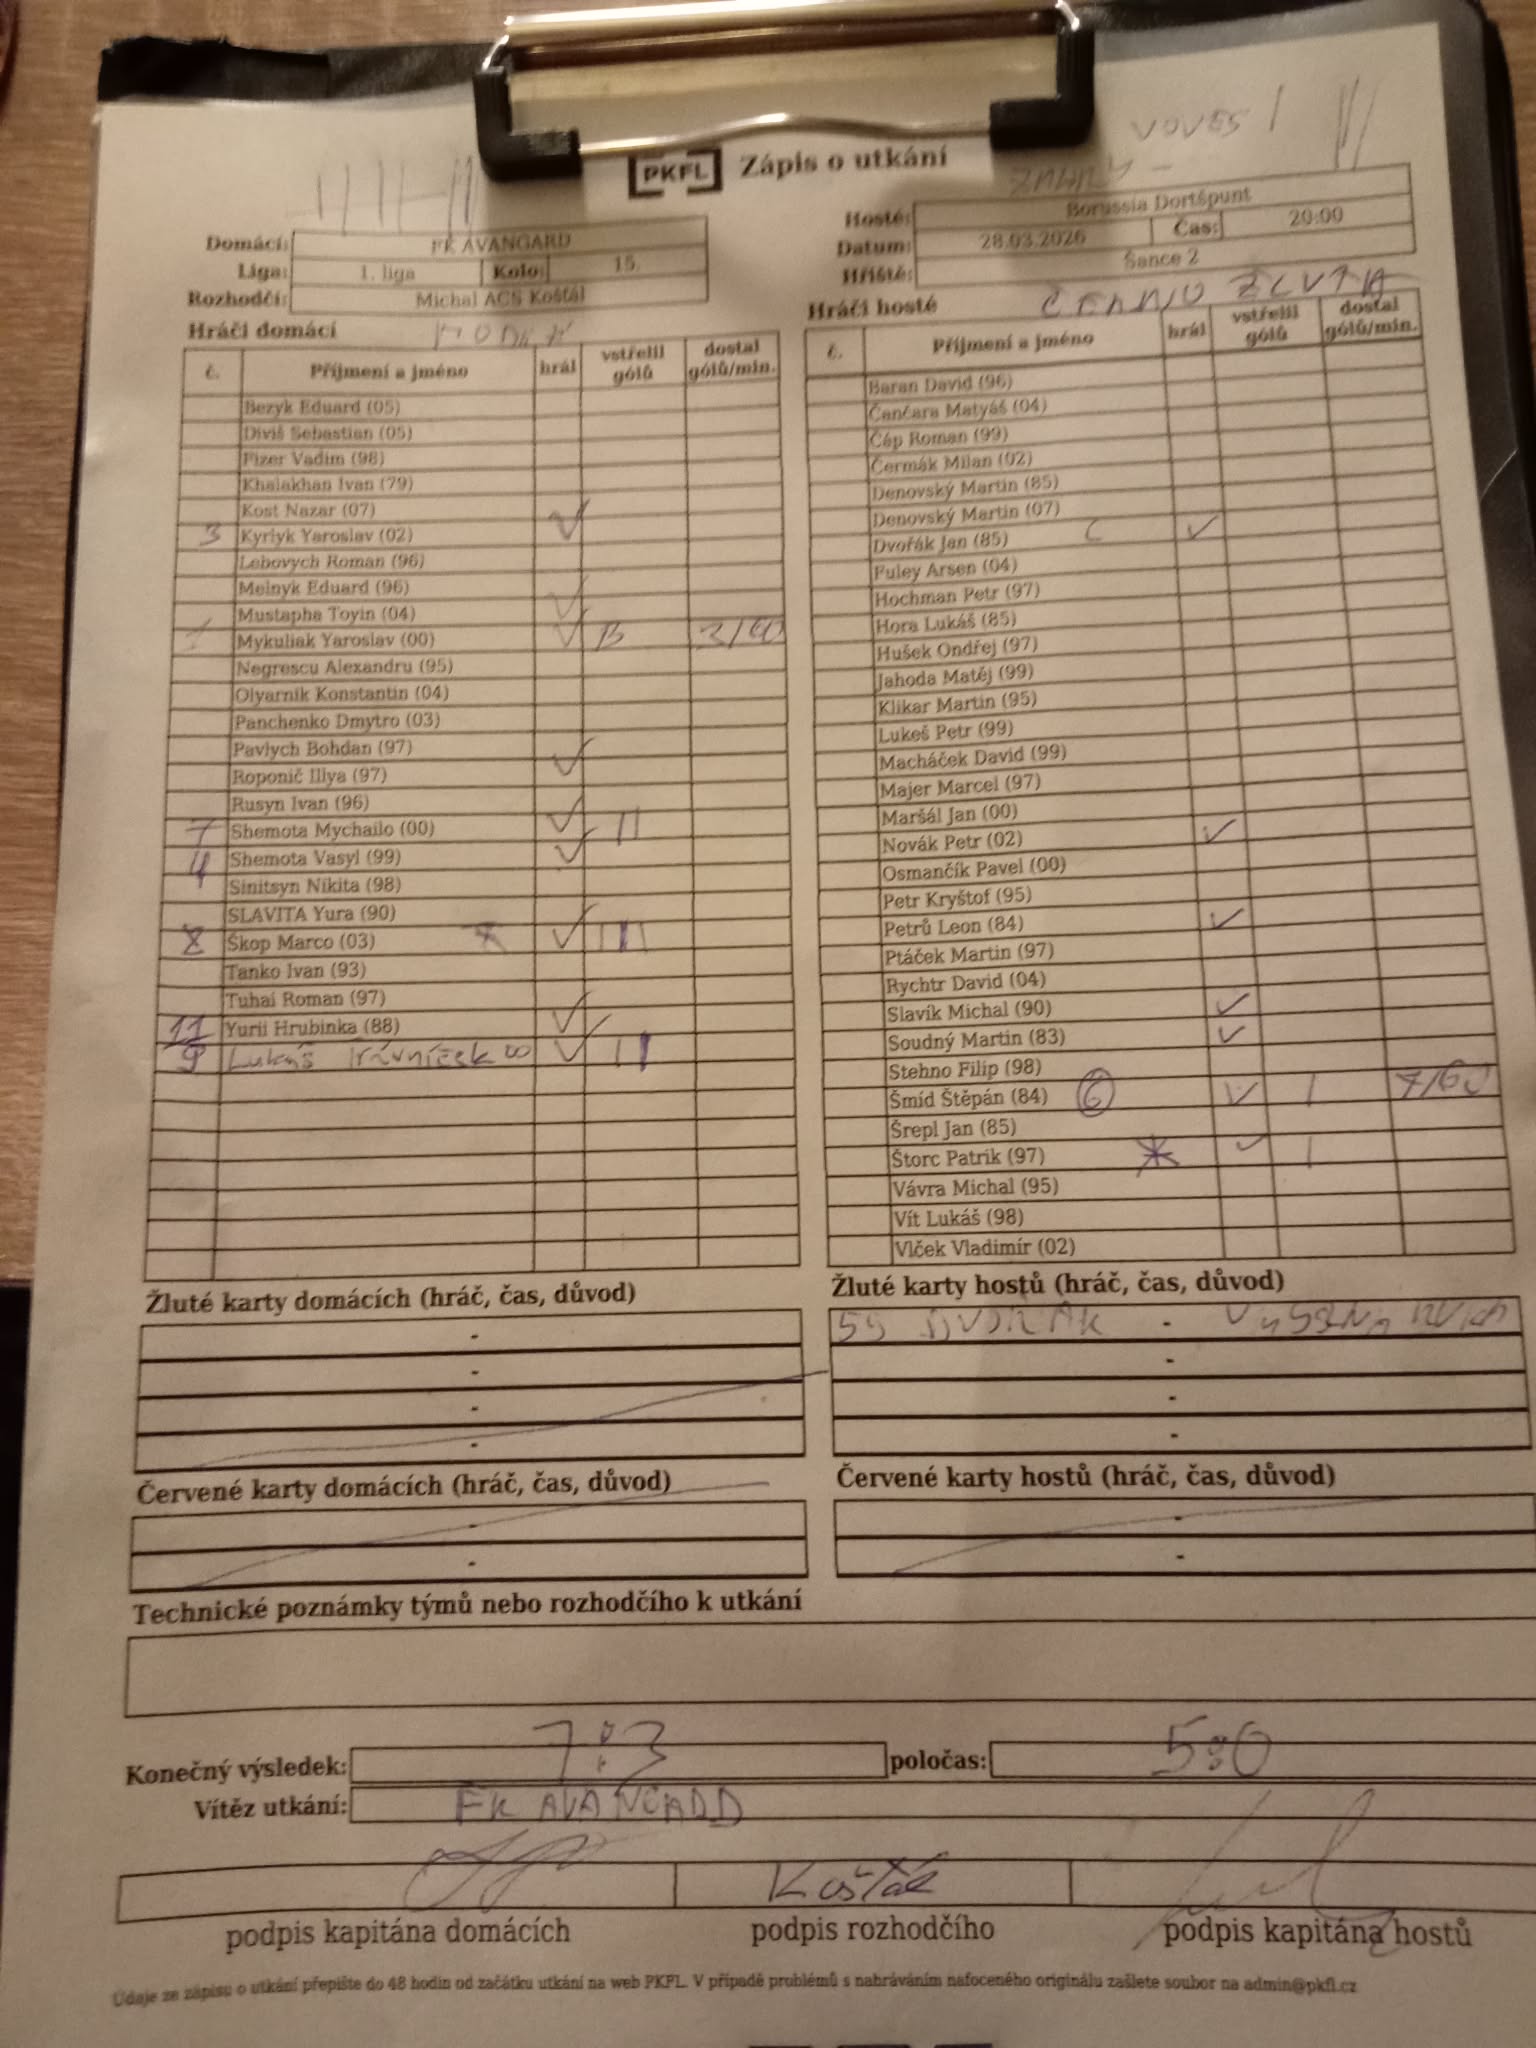 VOVES
PKFL Zápis o utkání
Domácí: FK AVANGARD
Liga: 1. liga Kolo: 15.
Rozhodčí: Michal ACS Košťál
Hosté: Borussia Dortšpunt
Datum: 28.03.2026 Čas: 20:00
Hřiště: Šance 2
Hráči domácí
č. Příjmení a jméno hrál vstřelil gólů dostal gólů/min.
Bezyk Eduard (05)
Diviš Sebastian (05)
Fizer Vadim (98)
Khalakhan Ivan (79)
Kost Nazar (07)
3 Kyrlyk Yaroslav (02)
Lebovych Roman (96)
Melnyk Eduard (96)
Mustapha Toyin (04)
1 Mykuliak Yaroslav (00) B 3/60
Negrescu Alexandru (95)
Olyarnik Konstantin (04)
Panchenko Dmytro (03)
Pavlych Bohdan (97)
Roponič Illya (97)
Rusyn Ivan (96)
7 Shemota Mychailo (00) II
4 Shemota Vasyl (99)
Sinitsyn Nikita (98)
SLAVITA Yura (90)
8 Škop Marco (03)
Tanko Ivan (93)
Tuhai Roman (97)
11 Yurii Hrubinka (88)
9 Lukáš Trávníček 00 II
Hráči hosté ČERNO ŽLUTÁ
č. Příjmení a jméno hrál vstřelil gólů dostal gólů/min.
Baran David (96)
Čančara Matyáš (04)
Čáp Roman (99)
Čermák Milan (02)
Denovský Martin (85)
Denovský Martin (07)
Dvořák Jan (85) C
Fuley Arsen (04)
Hochman Petr (97)
Hora Lukáš (85)
Hušek Ondřej (97)
Jahoda Matěj (99)
Klikar Martin (95)
Lukeš Petr (99)
Macháček David (99)
Majer Marcel (97)
Maršál Jan (00)
Novák Petr (02)
Osmančík Pavel (00)
Petr Kryštof (95)
Petrů Leon (84)
Ptáček Martin (97)
Rychtr David (04)
Slavík Michal (90)
Soudný Martin (83)
Stehno Filip (98)
Šmíd Štěpán (84) G I 7/60
Šrepl Jan (85)
Štorc Patrik (97) * I
Vávra Michal (95)
Vít Lukáš (98)
Vlček Vladimír (02)
Žluté karty domácích (hráč, čas, důvod)
Žluté karty hostů (hráč, čas, důvod)
DVOŘÁK -
Červené karty domácích (hráč, čas, důvod)
Červené karty hostů (hráč, čas, důvod)
Technické poznámky týmů nebo rozhodčího k utkání
Konečný výsledek: 7:3 poločas: 5:0
Vítěz utkání: FK AVANGARD
Košťál
podpis kapitána domácích podpis rozhodčího podpis kapitána hostů
Údaje ze zápisu o utkání přepište do 48 hodin od začátku utkání na web PKFL. V případě problémů s nahráváním nafoceného originálu zašlete soubor na admin@pkfl.cz